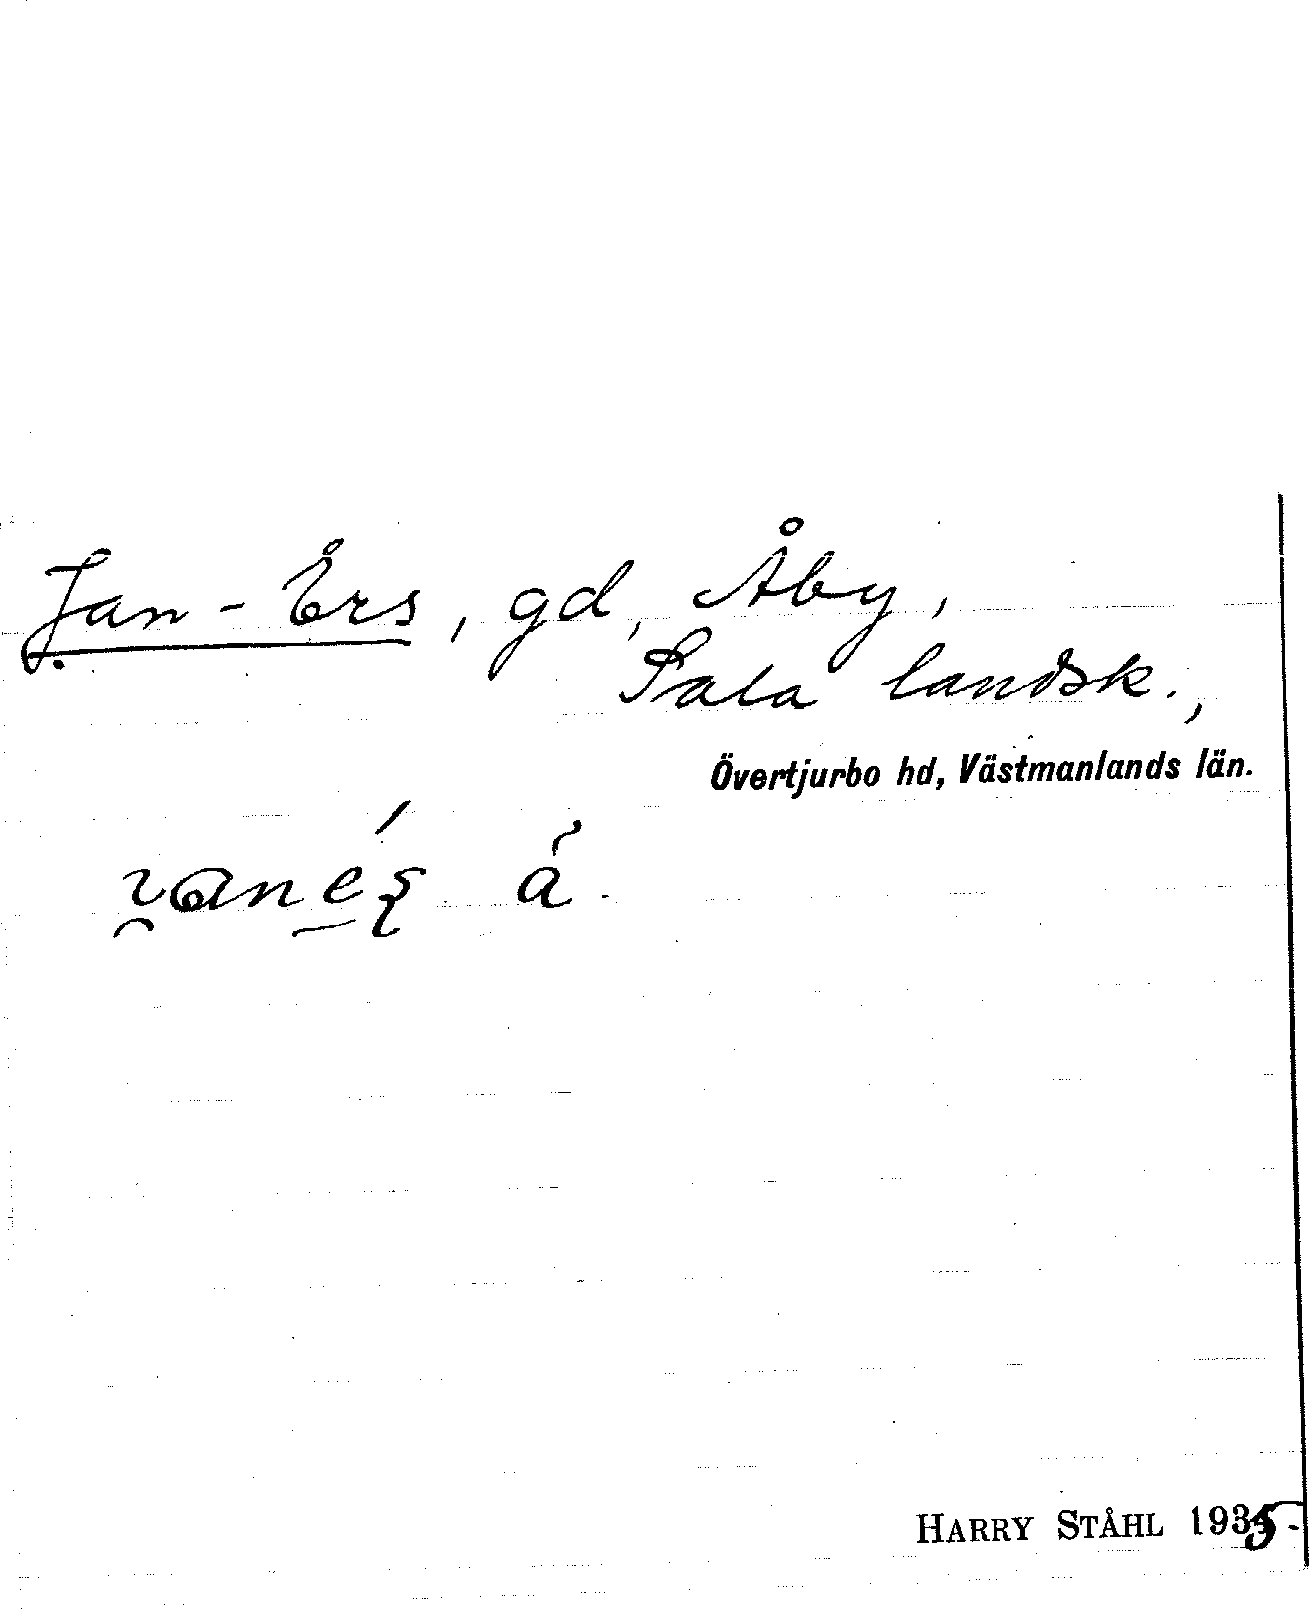 Jan-Ers, gd, Åby,
Sala landsk.,
Övertjurbo hd, Västmanlands län.
HARRY STÅHL 1935